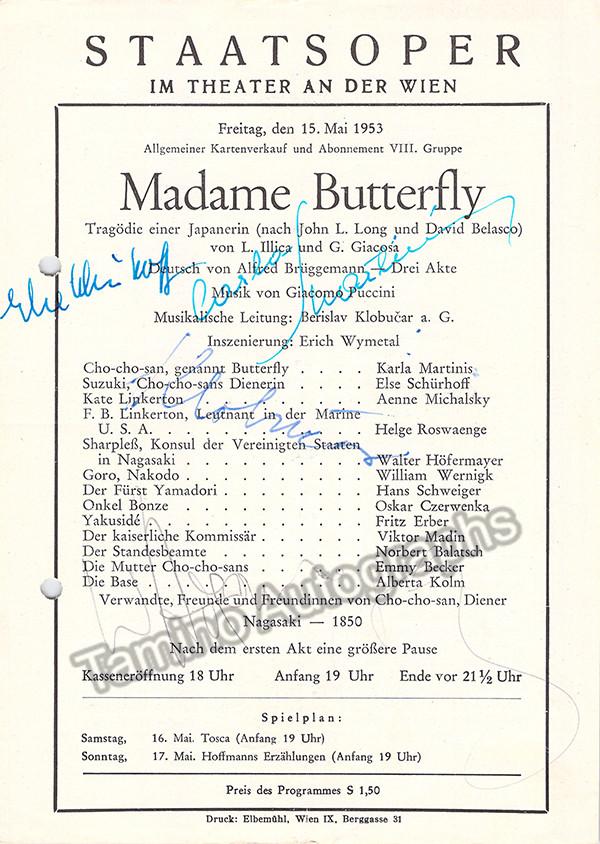 STAATSOPER
IM THEATER AN DER WIEN
Freitag, den 15. Mai 1953
Allgemeiner Kartenverkauf und Abonnement VIII. Gruppe
Madame Butterfly
Tragödie einer Japanerin (nach John L. Long und David Belasco)
von L. Illica und G. Giacosa
Deutsch von Alfred Brüggemann — Drei Akte
Musik von Giacomo Puccini
Musikalische Leitung: Berislav Klobučar a. G.
Inszenierung: Erich Wymetal
Cho-cho-san, genannt Butterfly . . . . Karla Martinis
Suzuki, Cho-cho-sans Dienerin . . . . Else Schürhoff
Kate Linkerton . . . . . . . . . . Aenne Michalsky
F. B. Linkerton, Leutnant in der Marine
U. S. A. . . . . . . . . . . . . Helge Roswaenge
Sharpleß, Konsul der Vereinigten Staaten
in Nagasaki . . . . . . . . . . Walter Höfermayer
Goro, Nakodo . . . . . . . . . . William Wernigk
Der Fürst Yamadori . . . . . . . . Hans Schweiger
Onkel Bonze . . . . . . . . . . Oskar Czerwenka
Yakusidé . . . . . . . . . . . . Fritz Erber
Der kaiserliche Kommissär . . . . . . Viktor Madin
Der Standesbeamte . . . . . . . . Norbert Balatsch
Die Mutter Cho-cho-sans . . . . . . Emmy Becker
Die Base . . . . . . . . . . . . Alberta Kolm
Verwandte, Freunde und Freundinnen von Cho-cho-san, Diener
Nagasaki — 1850
Nach dem ersten Akt eine größere Pause
Kasseneröffnung 18 Uhr Anfang 19 Uhr Ende vor 21½ Uhr
Spielplan:
Samstag, 16. Mai. Tosca (Anfang 19 Uhr)
Sonntag, 17. Mai. Hoffmanns Erzählungen (Anfang 19 Uhr)
Preis des Programmes S 1,50
Druck: Elbemühl, Wien IX, Berggasse 31
Else Schürhoff
Carla Martinis
Klobučar
Tamino Autographs